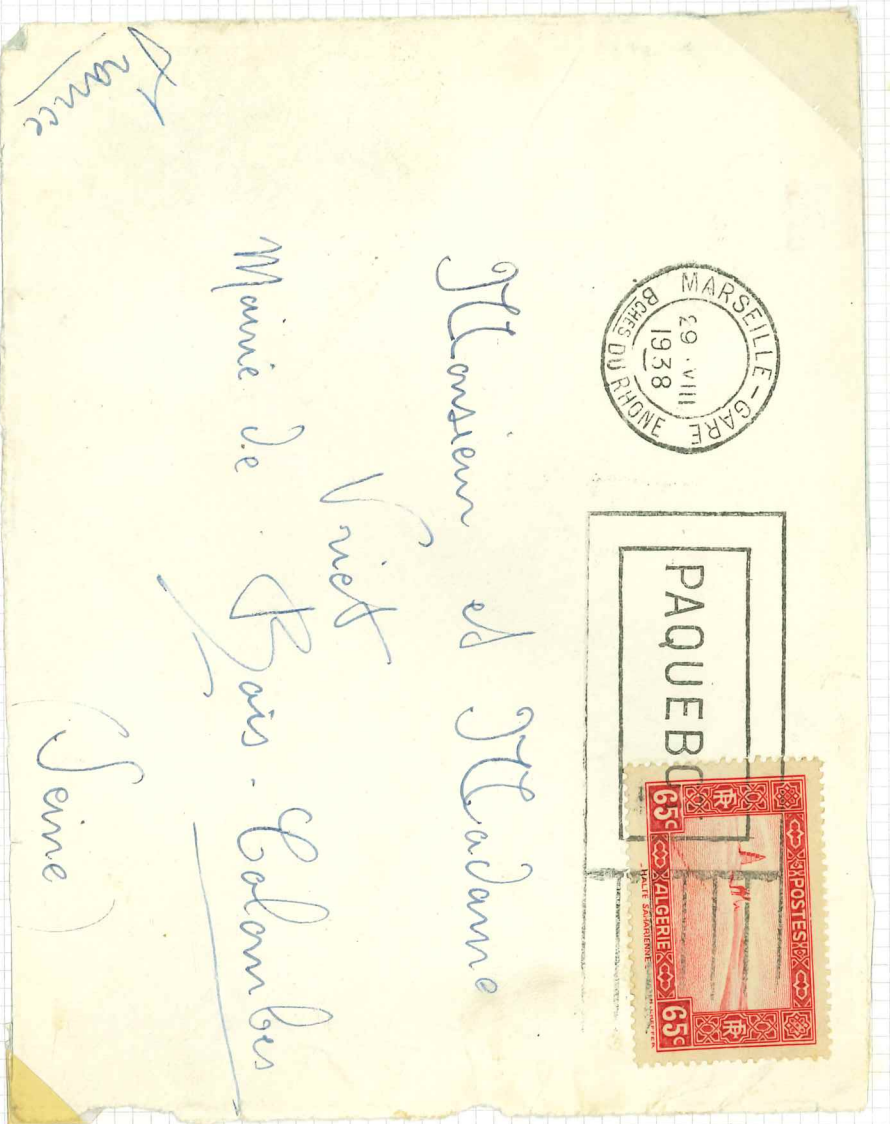 MARSEILLE-GARE
29 . VIII
1938
BCHES DU RHONE
PAQUEBO
POSTES
RF RF
65c ALGERIE 65c
HALTE SAHARIENNE
Monsieur et Madame
Mairie de Bois-Colombes
(Seine)
France